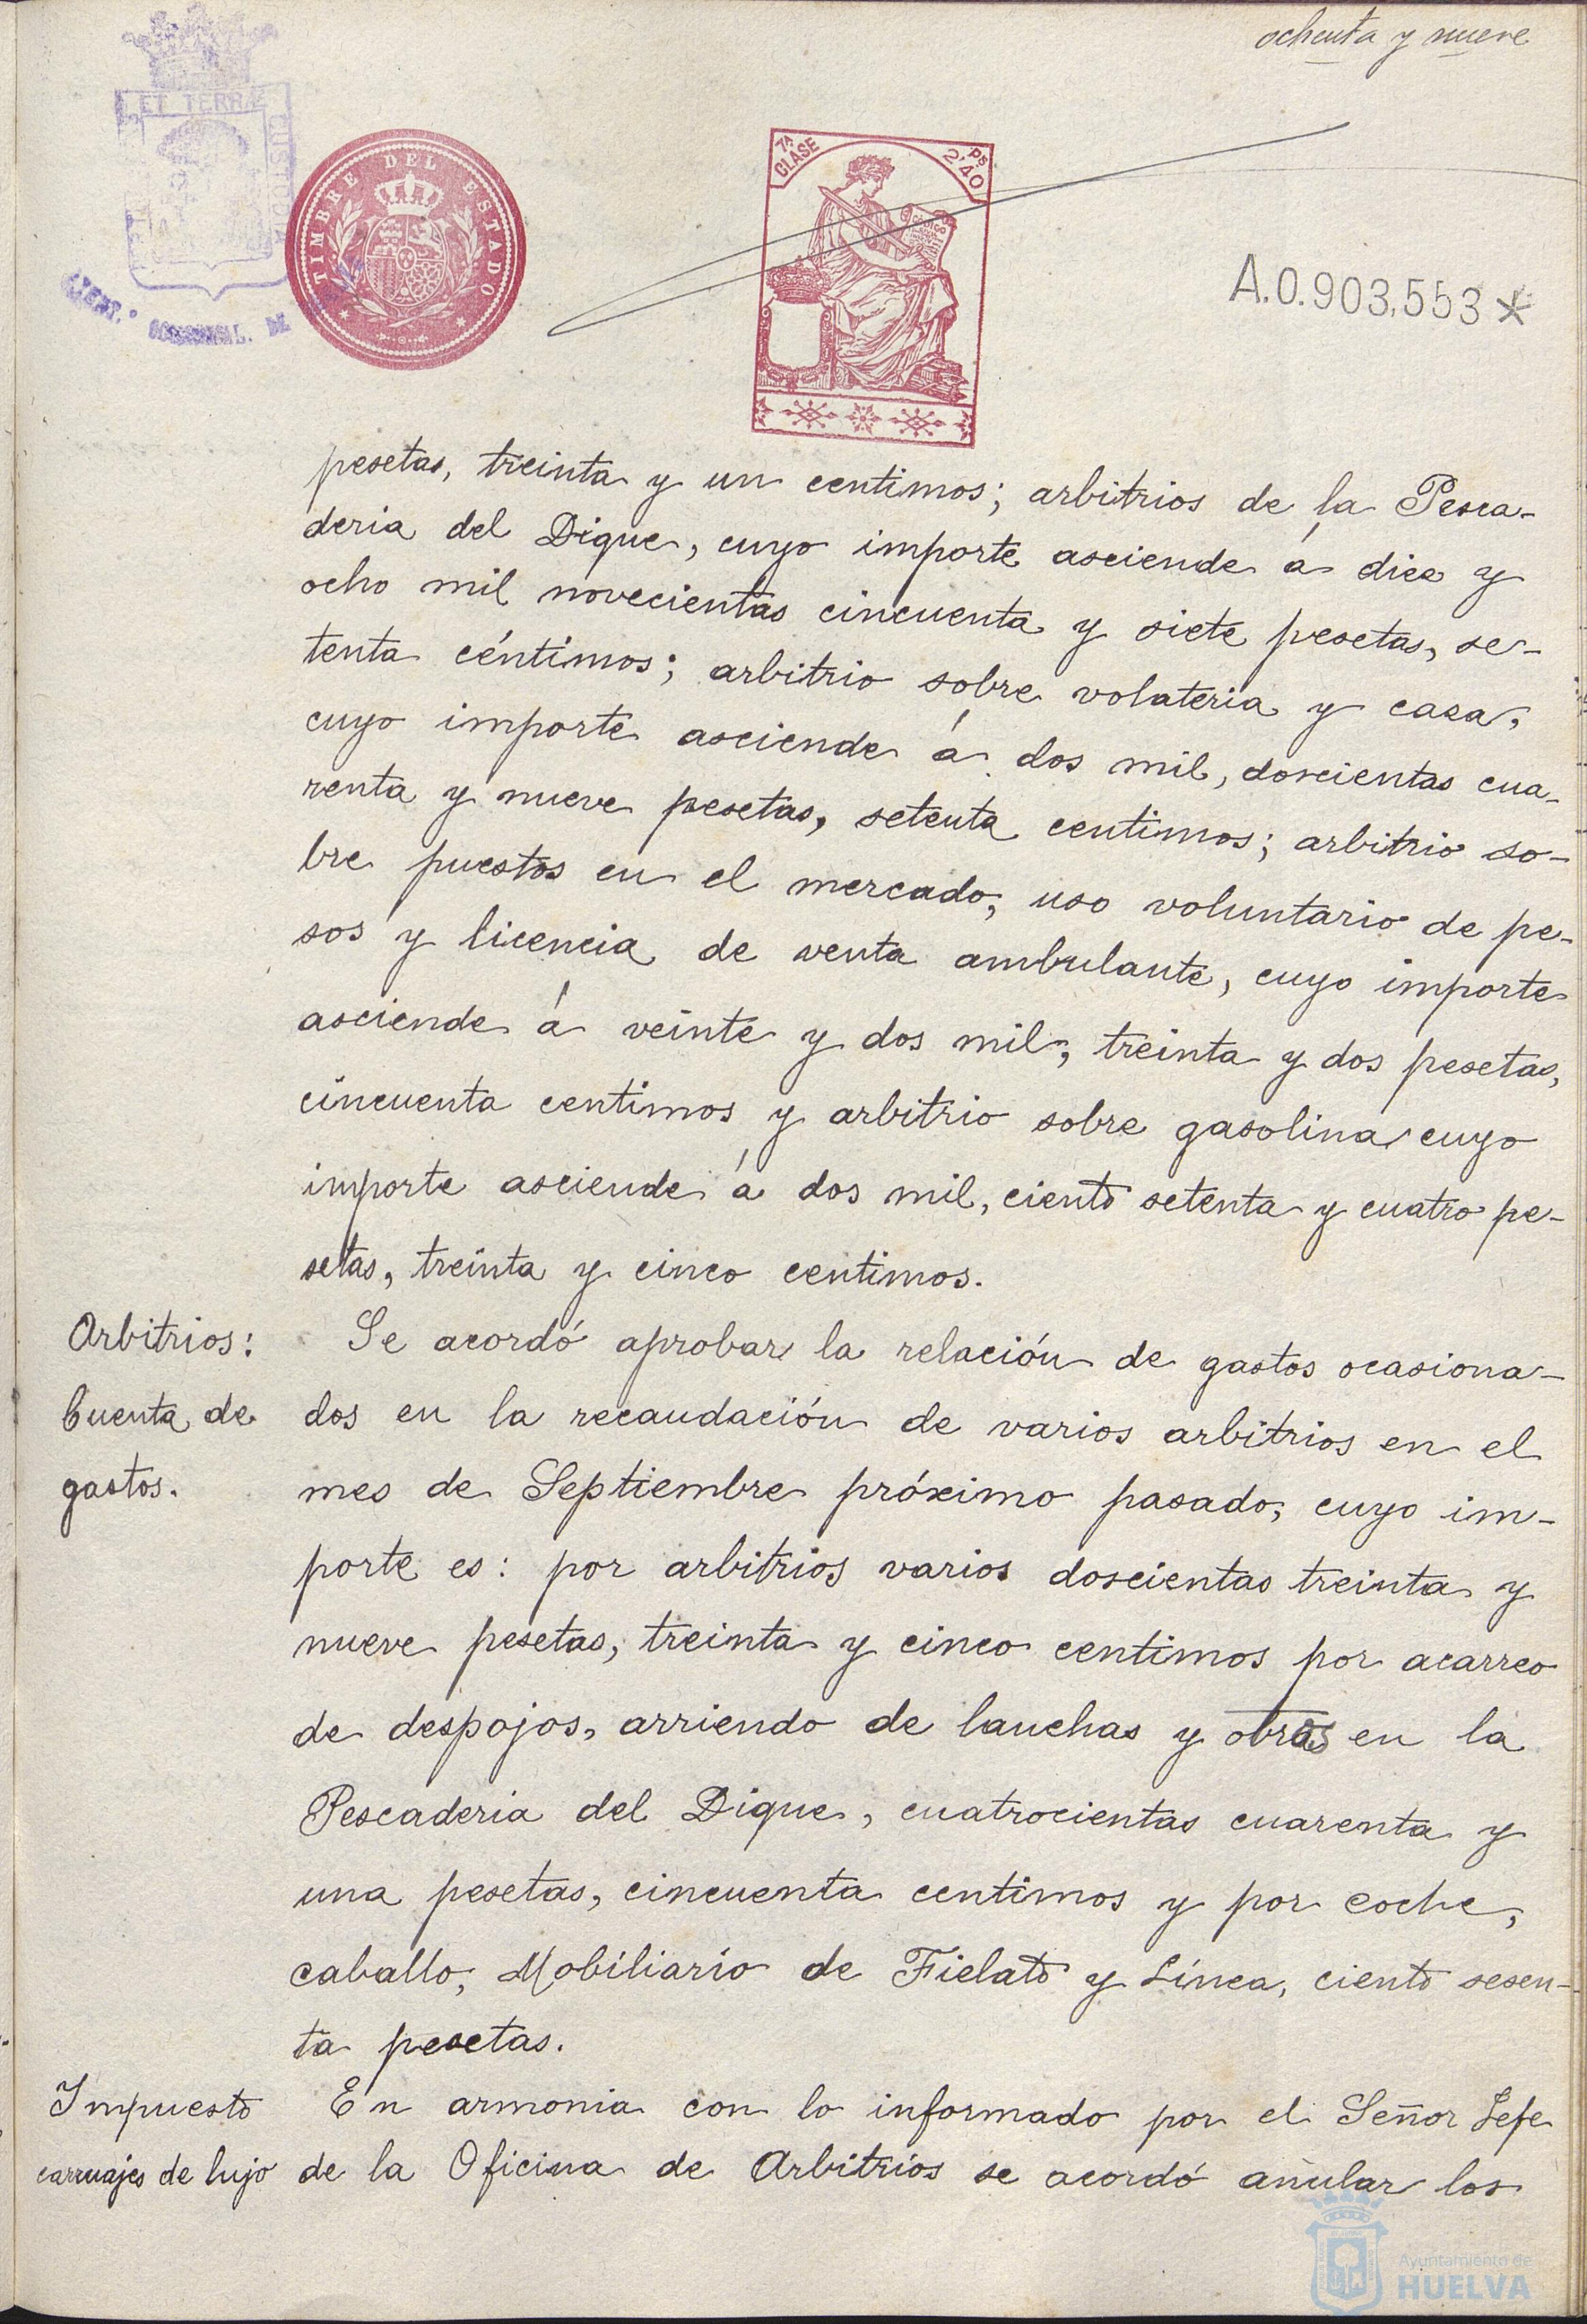 ochenta y nueve
ET TERRÆ CUSTODIA
TIMBRE DEL ESTADO
7ª CLASE
2'40 Ps
A.0.903,553*
pesetas, treinta y un centimos; arbitrios de la Pesca-
deria del Dique, cuyo importe asciende á diez y
ocho mil novecientas cincuenta y siete pesetas, se-
tenta céntimos; arbitrio sobre volateria y caza,
cuyo importe asciende á dos mil, doscientas cua-
renta y nueve pesetas, setenta centimos; arbitrio so-
bre puestos en el mercado, uso voluntario de pe-
sos y licencia de venta ambulante, cuyo importe
asciende á veinte y dos mil, treinta y dos pesetas,
cincuenta centimos y arbitrio sobre gasolina cuyo
importe asciende á dos mil, ciento setenta y cuatro pe-
setas, treinta y cinco centimos.
Arbitrios: Se acordó aprobar la relación de gastos ocasiona-
Cuenta de dos en la recaudación de varios arbitrios en el
gastos. mes de Septiembre próximo pasado, cuyo im-
porte es: por arbitrios varios doscientas treinta y
nueve pesetas, treinta y cinco centimos por acarreo
de despojos, arriendo de lanchas y obras en la
Pescaderia del Dique, cuatrocientas cuarenta y
una pesetas, cincuenta centimos y por coche,
caballo, Mobiliario de Fielato y Línea, ciento sesen-
ta pesetas.
Impuesto En armonia con lo informado por el Señor Jefe
carruajes de lujo de la Oficina de Arbitrios se acordó anular los
Ayuntamiento de
HUELVA